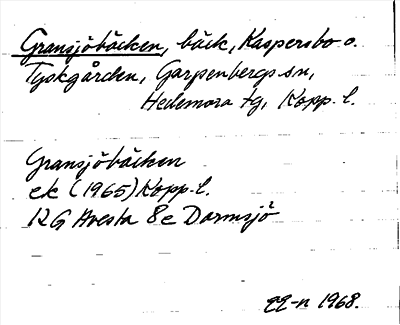 Gransjöbäcken, bäck, Kaspersbo o.
Tyskgården, Garpenbergs sn,
Hedemora tg, Kopp. l.
Gransjöbäcken
ek (1965) Kopp. l.
12G Avesta 8e Dormsjö
22-n 1968.